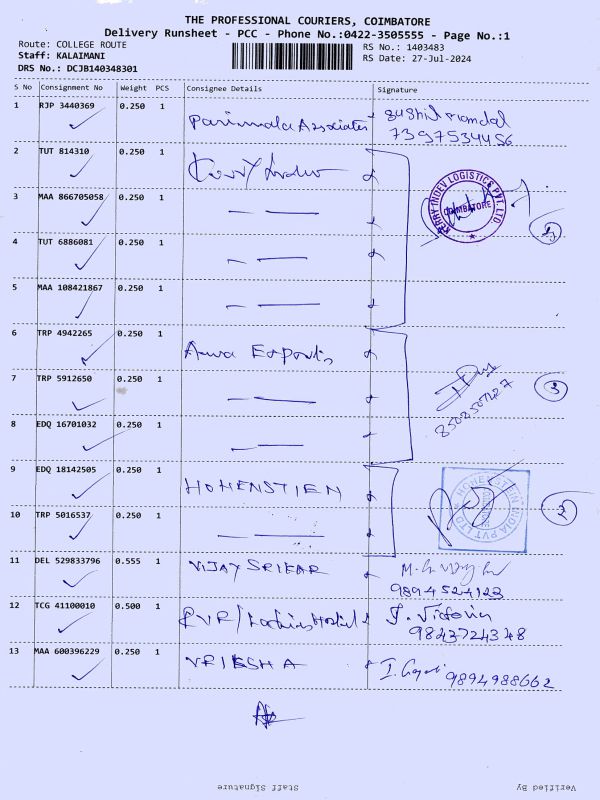 THE PROFESSIONAL COURIERS, COIMBATORE
Delivery Runsheet - PCC - Phone No.:0422-3505555 - Page No.:1
Route: COLLEGE ROUTE
Staff: KALAIMANI
DRS No.: DCJB140348301
RS No.: 1403483
RS Date: 27-Jul-2024
S No Consignment No Weight PCS Consignee Details Signature
1 RJP 3440369 0.250 1 Parimala Associates Sushil mandal
7397534456
2 TUT 814310 0.250 1 Kerry Indev
3 MAA 866705058 0.250 1
KERRY INDEV LOGISTICS PVT. LTD.
COIMBATORE
4 TUT 6886081 0.250 1
5 MAA 108421867 0.250 1
6 TRP 4942265 0.250 1 Exports
7 TRP 5912650 0.250 1
3
8 EDQ 16701032 0.250 1
9 EDQ 18142505 0.250 1 HOHENSTIEN
HOHENSTEIN INDIA PVT LTD
2
10 TRP 5016537 0.250 1
11 DEL 529833796 0.555 1 VIJAY SRIKAR
9894524123
12 TCG 41100010 0.500 1 PVR / Hostel J. Victoria
9843724348
13 MAA 600396229 0.250 1 VRIKSHA I. Gayati 9894988662
Staff Signature
Verified By